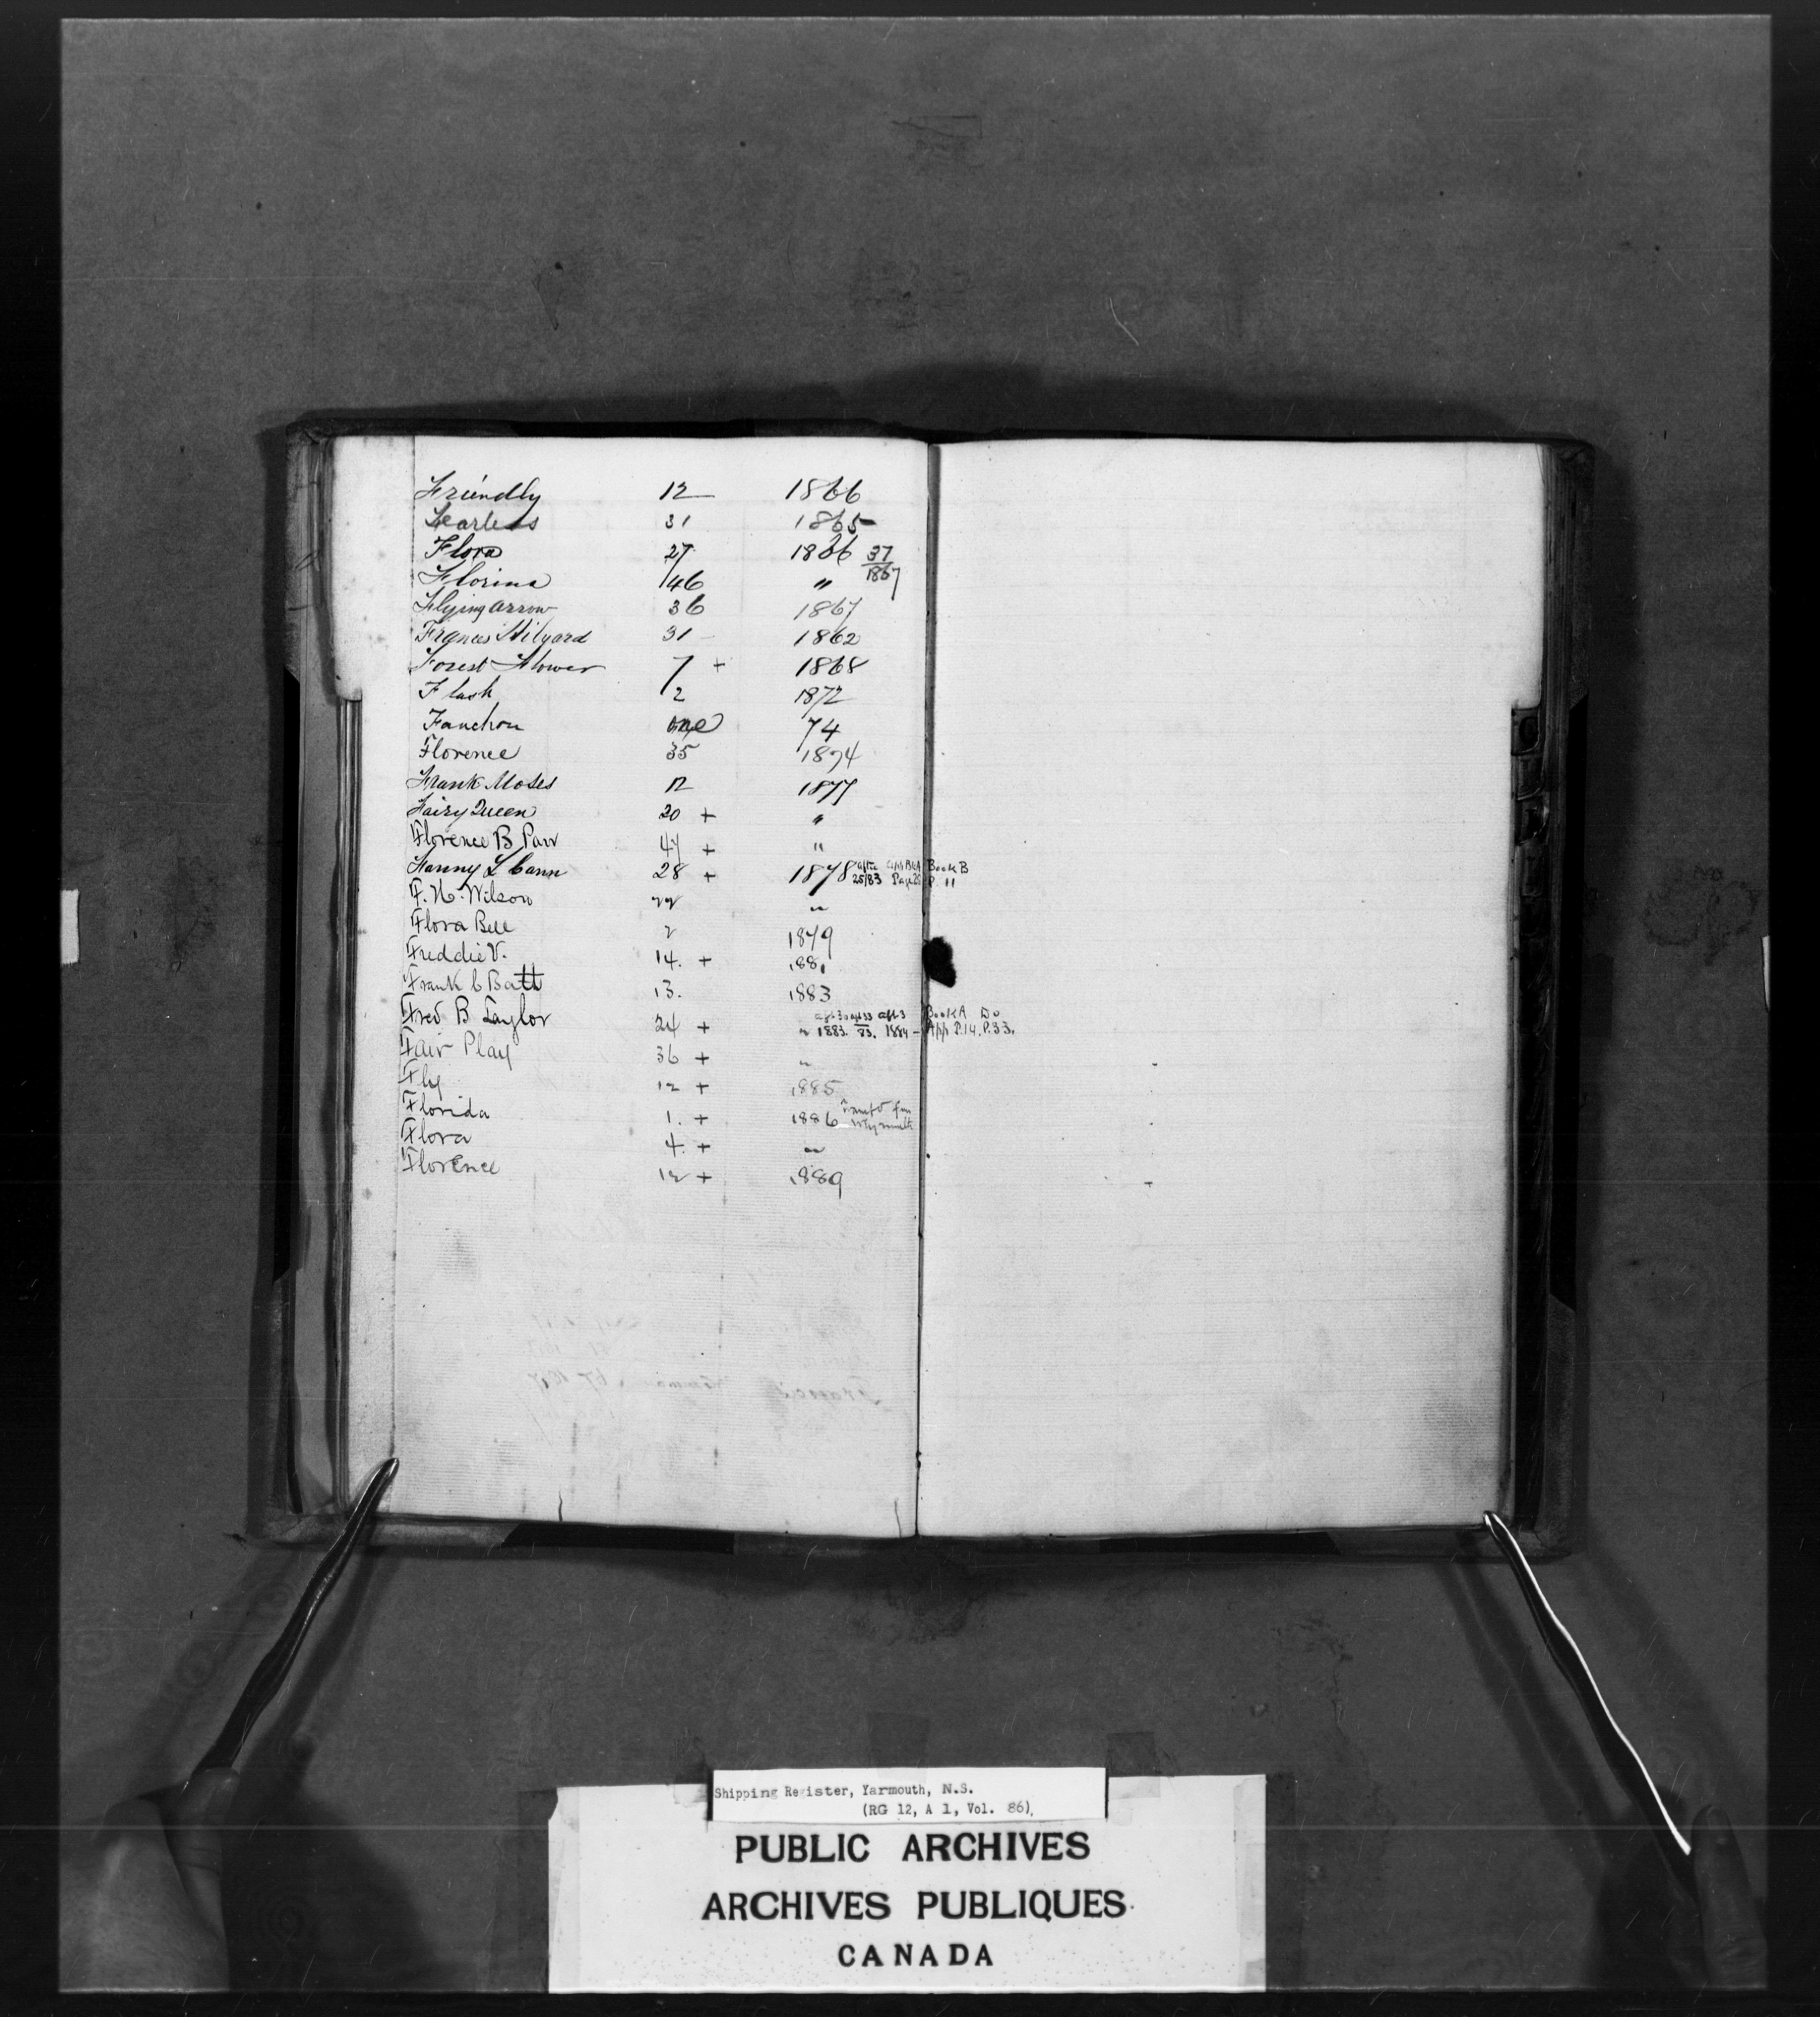 Friendly 12 1866
Fearless 31 1865
Flora 27 1866 37/1867
Florina 46 "
Flying Arrow 36 1867
Frances Hilyard 31 1862
Forest Flower 7 + 1868
Flash 2 1872
Fanchon one 74
Florence 35 1874
Frank Moses 12 1877
Fairy Queen 20 + "
Florence B Parr 47 + "
Fanny L Cann 28 + 1878 25/83 Page 25 Book B P. 11
F. H. Wilson 22 "
Flora Bell 2 1879
Freddie V. 14. + 1881
Frank C Batt 13. 1883
Fred B Taylor 24 + " 1883. 83. 1884 - Book A Do App P.14. P.33.
Fair Play 36 + "
Fly 12 + 1885
Florida 1. + 1886
Flora 4. + "
Florence 12 + 1889
Shipping Register, Yarmouth, N.S.
(RG 12, A 1, Vol. 86)
PUBLIC ARCHIVES
ARCHIVES PUBLIQUES
CANADA